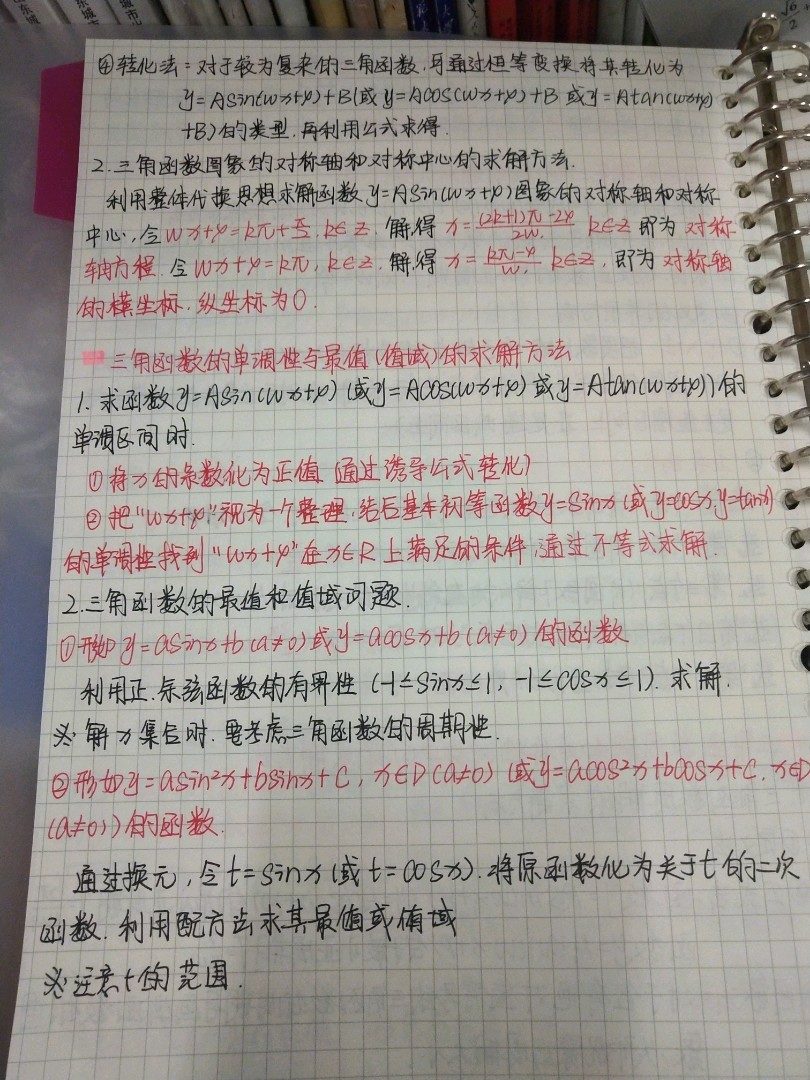 东城
城市心
④转化法：对于较为复杂的三角函数，可通过恒等变换将其转化为
y=Asin(wx+φ)+B(或y=Acos(wx+φ)+B 或y=Atan(wx+φ)
+B)的类型，再利用公式求得.
2.三角函数图象的对称轴和对称中心的求解方法.
利用整体代换思想求解函数y=Asin(wx+φ)图象的对称轴和对称
中心，令wx+φ=kπ+π/2，k∈z，解得 x=((2k+1)π-2φ)/2w，k∈z 即为对称
轴方程. 令wx+φ=kπ，k∈z，解得 x=(kπ-φ)/w，k∈z，即为对称轴
的横坐标，纵坐标为0.
三角函数的单调性与最值(值域)的求解方法
1. 求函数y=Asin(wx+φ)(或y=Acos(wx+φ)或y=Atan(wx+φ))的
单调区间时.
①将x的系数化为正值 (通过诱导公式转化)
②把“wx+φ”视为一个整理，结合基本初等函数y=sinx(或y=cosx,y=tanx)
的单调性找到“wx+φ”在x∈R上满足的条件，通过不等式求解.
2.三角函数的最值和值域问题.
①形如y=asinx+b(a≠0)或y=acosx+b(a≠0)的函数
利用正.余弦函数的有界性(-1≤sinx≤1，-1≤cosx≤1).求解.
※解x集合时.要考虑三角函数的周期性.
②形如y=asin²x+bsinx+c，x∈D(a≠0)(或y=acos²x+bcosx+c，x∈D
(a≠0))的函数.
通过换元，令t=sinx(或t=cosx).将原函数化为关于t的二次
函数.利用配方法求其最值或值域
※注意t的范围.